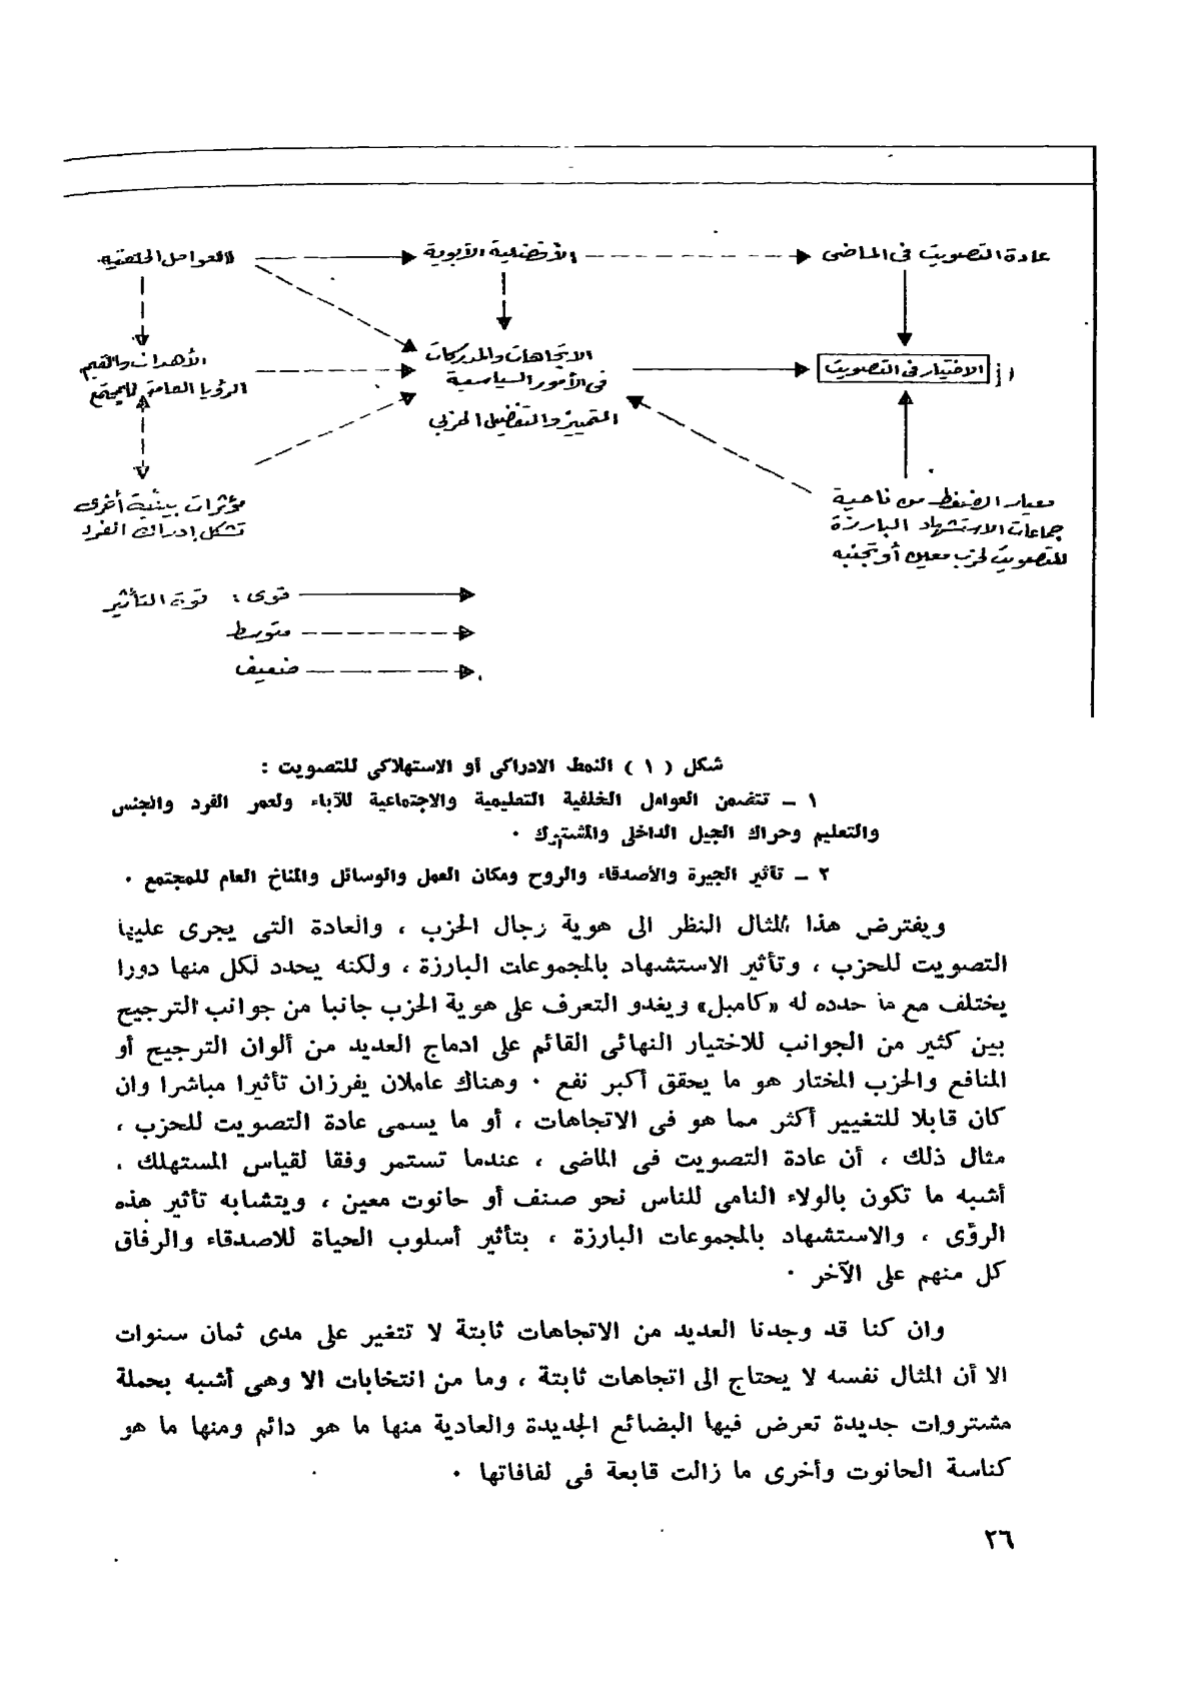 عادة التصويت فى الماضى
الأفضلية الأبوية
العوامل الخلفية
الاتجاهات والمدركات
فى الأمور السياسية
التمييز والتفضيل الحزبى
الأهداف والقيم
الرؤيا العامة للمجتمع
الاختيار فى التصويت
مؤثرات بيئية أخرى
تشكل إدراك الفرد
معيار الضغط من ناحية
جماعات الاستشهاد البارزة
للتصويت لحزب معين أو تجنبه
قوة التأثير : قوى
متوسط
ضعيف
شكل ( ١ ) النمط الادراكى أو الاستهلاكى للتصويت :
١ ــ تتضمن العوامل الخلفية التعليمية والاجتماعية للآباء ولعمر الفرد والجنس
والتعليم وحراك الجيل الداخلى والمشترك ٠
٢ ــ تأثير الجيرة والأصدقاء والروح ومكان العمل والوسائل والمناخ العام للمجتمع ٠
ويفترض هذا المثال النظر الى هوية رجال الحزب ، والعادة التى يجرى عليها
التصويت للحزب ، وتأثير الاستشهاد بالمجموعات البارزة ، ولكنه يحدد لكل منها دورا
يختلف مع ما حدده له «كامبل» ويغدو التعرف على هوية الحزب جانبا من جوانب الترجيح
بين كثير من الجوانب للاختيار النهائى القائم على ادماج العديد من ألوان الترجيح أو
المنافع والحزب المختار هو ما يحقق أكبر نفع ٠ وهناك عاملان يفرزان تأثيرا مباشرا وان
كان قابلا للتغيير أكثر مما هو فى الاتجاهات ، أو ما يسمى عادة التصويت للحزب ،
مثال ذلك ، أن عادة التصويت فى الماضى ، عندما تستمر وفقا لقياس المستهلك ،
أشبه ما تكون بالولاء النامى للناس نحو صنف أو حانوت معين ، ويتشابه تأثير هذه
الرؤى ، والاستشهاد بالمجموعات البارزة ، بتأثير أسلوب الحياة للاصدقاء والرفاق
كل منهم على الآخر ٠
وان كنا قد وجدنا العديد من الاتجاهات ثابتة لا تتغير على مدى ثمان سنوات
الا أن المثال نفسه لا يحتاج الى اتجاهات ثابتة ، وما من انتخابات الا وهى أشبه بحملة
مشتروات جديدة تعرض فيها البضائع الجديدة والعادية منها ما هو دائم ومنها ما هو
كناسة الحانوت وأخرى ما زالت قابعة فى لفافاتها ٠
٢٦